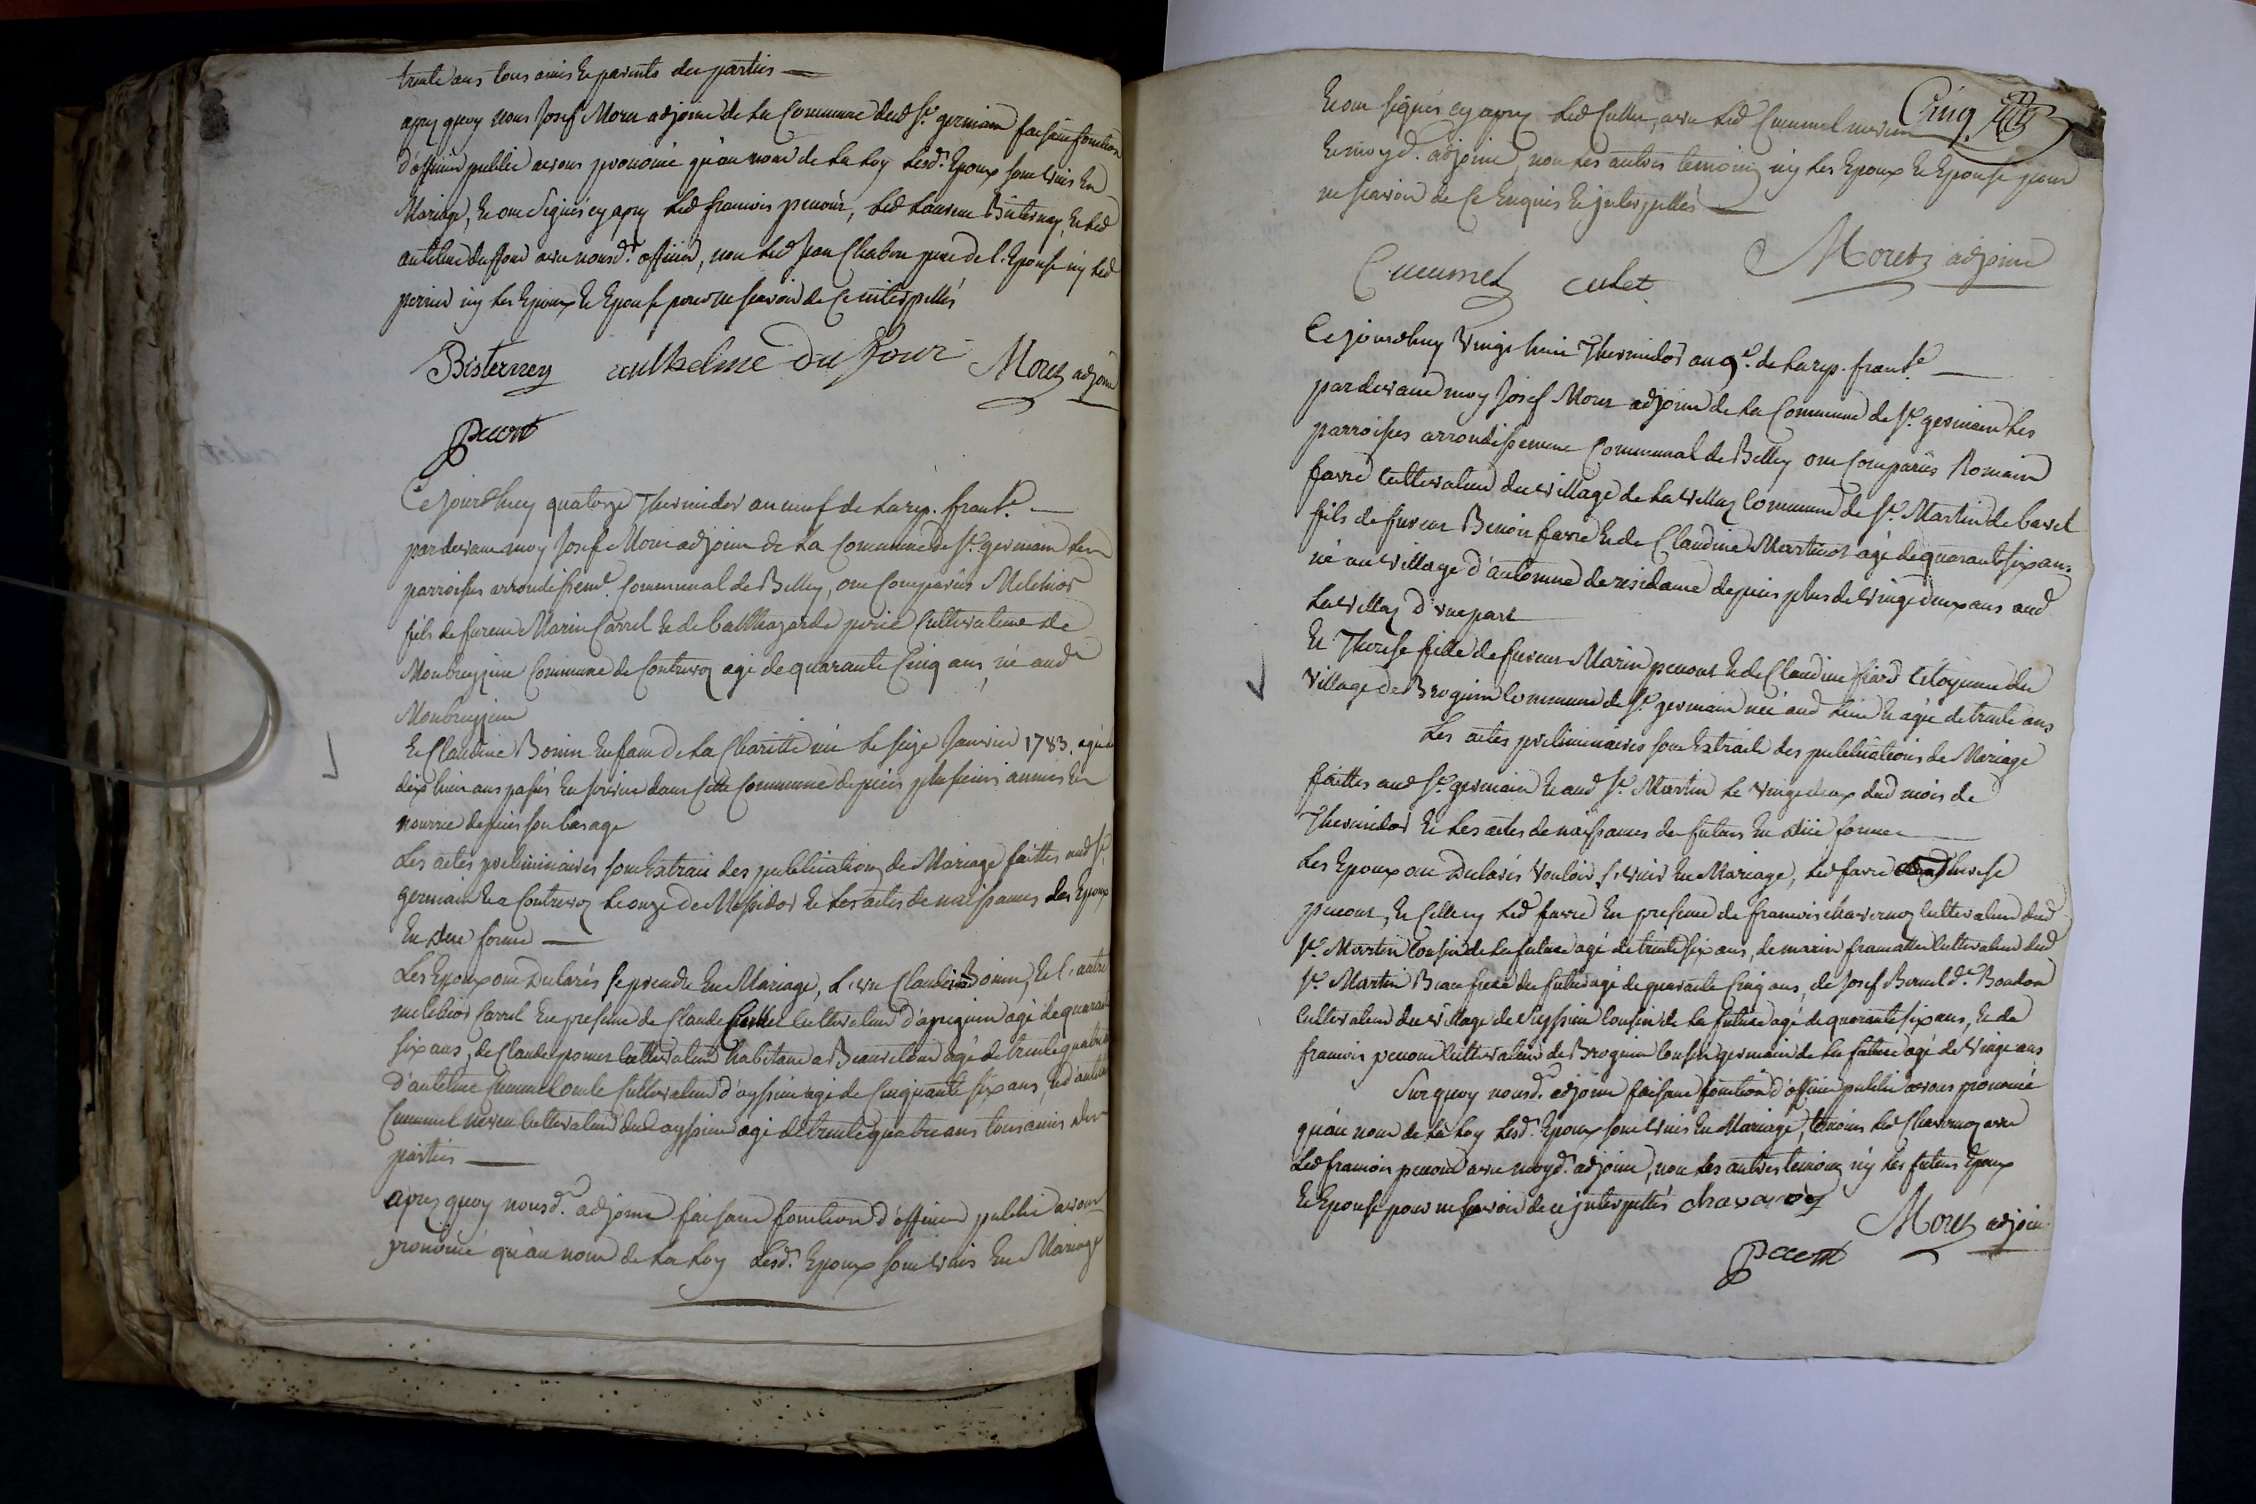 trente ans tous amis et parents des parties —
apres quoy nous Josef Moret adjoint de la Commune dud St. germain faisant fonction
d'officier public avons prononcé qu'au nom de la loy lesd. Epoux sont unis En
Mariage, et ont signés cy apres led francois penont, led Laurent Bisterney, et led
antelme dufour avec nousd. officier, non led Jean Chabon pere de l'Epouse ny led
perrier ny les Epoux et Epouse pour ne scavoir de ce interpellés
Bisterney anthelme Du four Moret adjoint
Ce jourdhuy quatorze Thermidor an neuf de la rep. franc.e —
pardevant moy Josef Moret adjoint de la Commune de St. germain les
parroisses arrondissem.t Communal de Belley, ont Comparûs Melchior
fils de fureur Marin Carrel et de Balthazarde perie Cultivateur de
Commune de Contrevoz agé de quarante Cinq ans, né aud.
Et Claudine Bonin Enfant de la Charitté née le seize Janvier 1783. agée de
dix huit ans passés En service dans Cette Commune depuis plusieurs années En
nourrie depuis son bas age
Les actes preliminaires sont Extrait des publications de Mariage faittes aud St.
germain et a Contrevoz le onze de Messidor et les actes de naissances des Epoux
En düe forme —
Les Epoux ont Declarés se prendre En Mariage, L'une Claudine Bonin, Et l'autre
melchior Carrel En presence de Claude Cullet Cultivateur d'apregnin agé de quarante
six ans, de Claude Cultivateur habitant a agé de trente quatre
d'antelme Cuminet oncle Cultivateur d'ayssieu agé de Cinquante six ans, et d'antelme
Cuminet neveu Cultivateur dud ayssieu agé de trente quatre ans tous amis des
parties —
apres quoy nousd. adjoint faisant fonction d'officier public avons
prononcé qu'au nom de la loy lesd. Epoux sont unis En Mariage
Cinq
Et ont signés cy apres led Cullet, avec led Cuminet neveu
Et moyd. adjoint, non les autres temoins ny les Epoux et Epouse pour
ne scavoir de ce Enquis et jnterpellés —
Cuminet culet Moret adjoint
Ce jourdhuy Vingt huit Thermidor an 9e. de la rep. franc.e —
pardevant moy Josef Moret adjoint de la Commune de St. germain les
parroisses arrondissement Communal de Belley ont Comparûs Romain
favre Cultivateur du village de la villaz Commune de St. Martin de bavel
fils de fureur Benoit favre et de Claudine Martinot agé de quarante six ans
né au village d'antonne de residance depuis plus de vingt deux ans aud
la villaz d'une part
Et Therese fille de fureur Marin penont et de Claudine fiard Citoyenne du
village de Brognin Commune de St. germain née aud lieu et agée de trente ans
Les actes preliminaires sont Extraits des publications de Mariage
faittes aud St. germain et aud St. Martin le vingt deux dud mois de
Thermidor et les actes de naissances des futurs En düe forme —
Les Epoux ont Declarés Vouloir s'unir En Mariage, led favre Therese
penont, Et Celle cy led favre En presence de francois chavornoz Cultivateur dud
St. Martin Cousin de la future agé de trente six ans, de marin Cultivateur dud
St. Martin Beau frere du futur agé de quarante Cinq ans, de Josef Brunel d. Bondon
Cultivateur du village de Cussieu Cousin de la future agé de quarante six ans, et de
francois penont Cultivateur de Brognin Cousin germain de la future agé de vingt ans
Sur quoy nousd. adjoint faisant fonction d'officier public avons prononcé
qu'au nom de la loy lesd. Epoux sont unis En Mariage, temoins led Chavornoz avec
led francois penont avec moyd. adjoint, non les autres temoins ny les futurs Epoux
Et Epouse pour ne scavoir de ce jnterpellés chavaroz
Moret adjoint